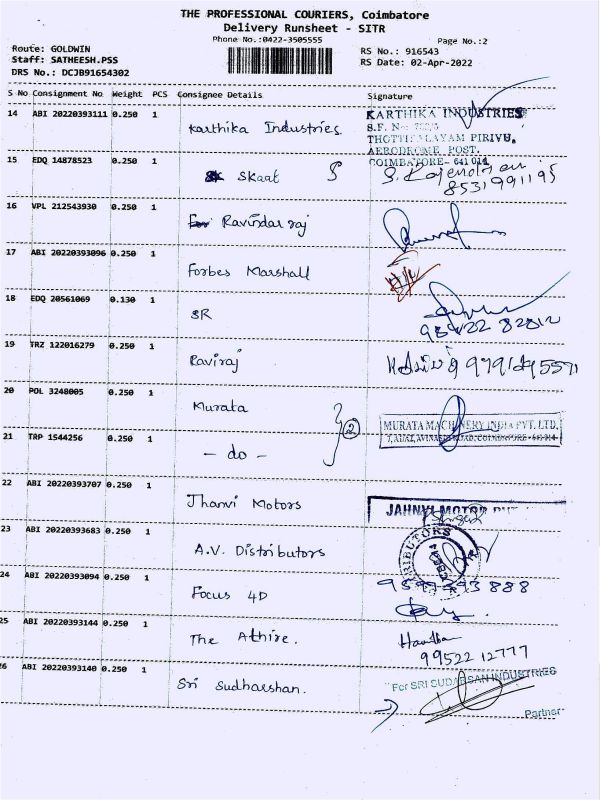 THE PROFESSIONAL COURIERS, Coimbatore
Delivery Runsheet - SITR
Phone No.:0422-3505555
Page No.:2
Route: GOLDWIN
Staff: SATHEESH.PSS
DRS No.: DCJB91654302
RS No.: 916543
RS Date: 02-Apr-2022
S No Consignment No Weight PCS Consignee Details Signature
14 ABI 20220393111 0.250 1 Karthika Industries
KARTHIKA INDUSTRIES
S.F. No:
PIRIVU,
AERODROME POST,
COIMBATORE- 641 014
15 EDQ 14878523 0.250 1 Skaat
8531991195
16 VPL 212543930 0.250 1 Ravindar raj
17 ABI 20220393096 0.250 1 Forbes Marshall
18 EDQ 20561069 0.130 1 SR
19 TRZ 122016279 0.250 1 Raviraj
20 POL 3248005 0.250 1 Murata
2
MURATA MACHINERY INDIA PVT. LTD.
21 TRP 1544256 0.250 1 - do -
22 ABI 20220393707 0.250 1 Jhanvi Motors
JAHNVI MOTOR PVT
23 ABI 20220393683 0.250 1 A.V. Distributors
24 ABI 20220393094 0.250 1 Focus 4D
25 ABI 20220393144 0.250 1 The Athire.
99522 12777
26 ABI 20220393140 0.250 1 Sri Sudharshan.
For SRI SUDARSAN INDUSTRIES
Partner